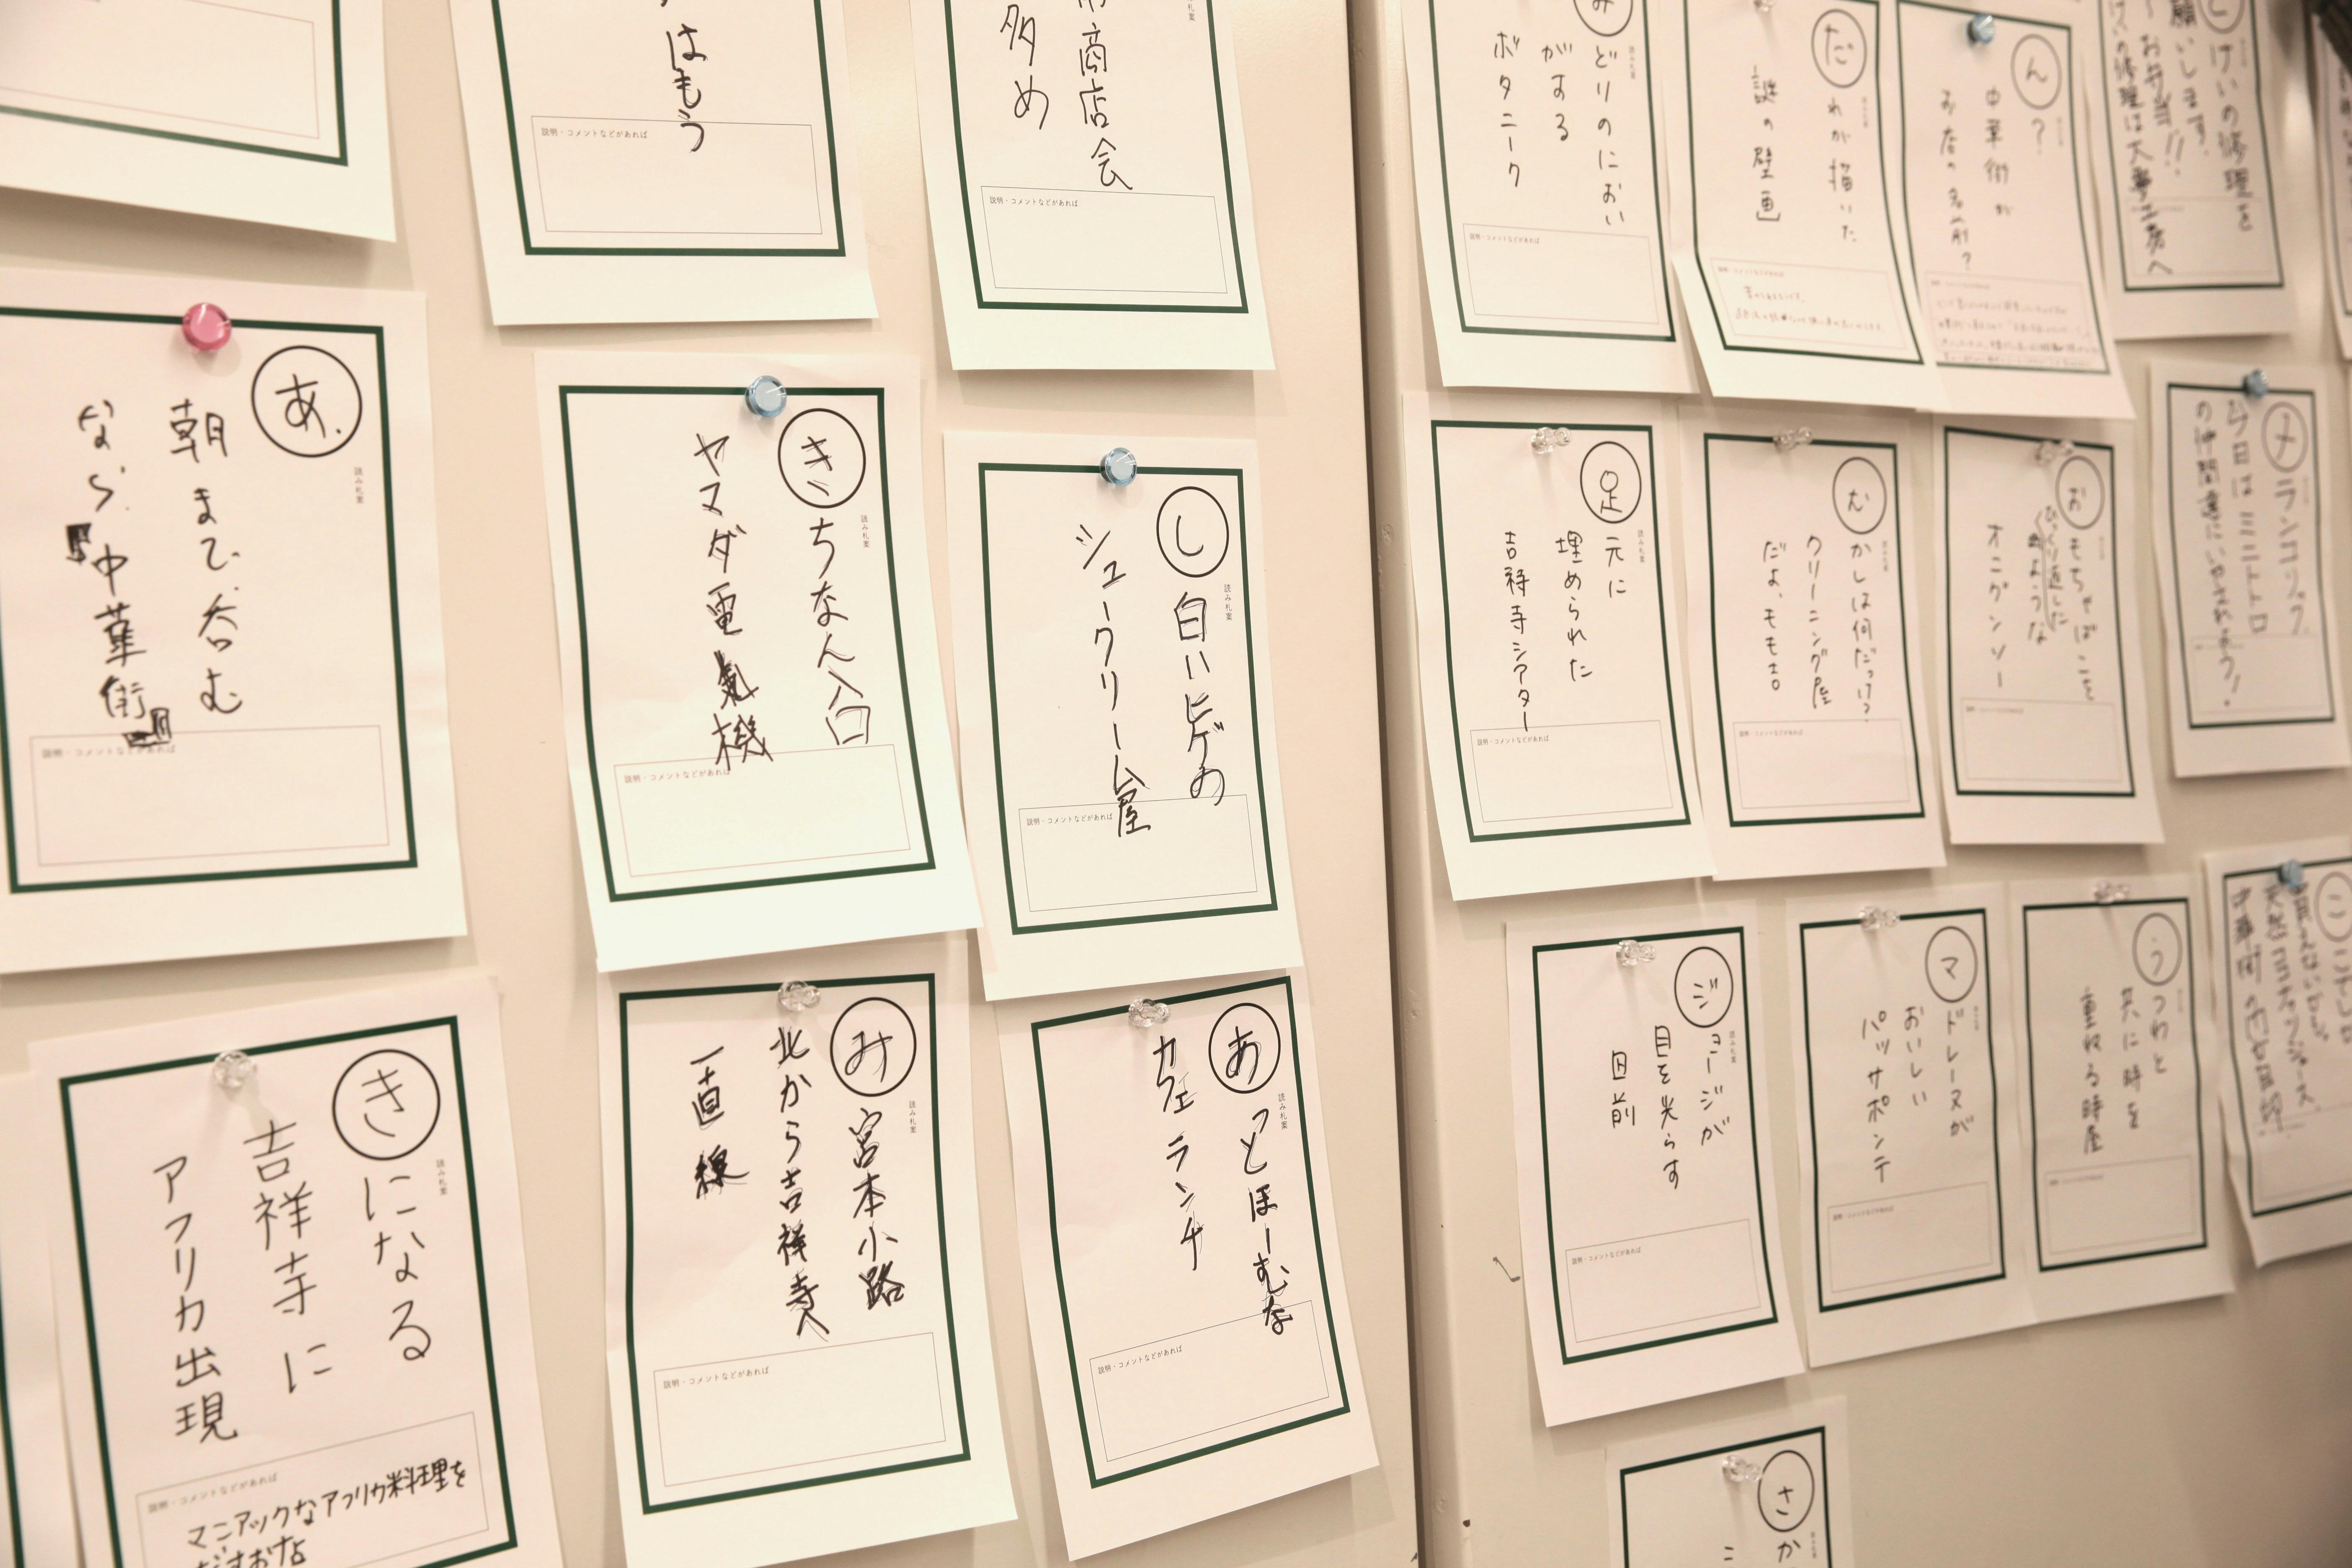 はもう
説明・コメントなどがあれば
商店会
多め
説明・コメントなどがあれば
みどりのにおい
がする
ボタニーク
説明・コメントなどがあれば
だれが描いた
謎の壁画
ん?
中華街が
お店の名前?
とけいの修理を
お願いします。
お弁当!!
あ.
読み札案
朝まで呑む
なら
中華街
説明・コメントなどがあれば
き
読み札案
ちなん入口
ヤマダ電氣機
説明・コメントなどがあれば
し
読み札案
白いヒゲの
シュークリーム屋
説明・コメントなどがあれば
足
読み札案
元に
埋められた
吉祥寺シアター
説明・コメントなどがあれば
む
読み札案
かしは何だっけ?
クリーニング屋
だよ、もも吉。
説明・コメントなどがあれば
お
もちゃばこを
ひっくり返した
ような
オニグンソー
メ
ランコリック。
今日はミニトトロ
の仲間達にいやされよう!
き
読み札案
になる
吉祥寺に
アフリカ出現
説明・コメントなどがあれば
マニアックなアフリカ料理を
だすお店
み
読み札案
宮本小路
北から吉祥寺へ
一直線
説明・コメントなどがあれば
あ
読み札案
っとほーむな
カフェランチ
説明・コメントなどがあれば
ジ
読み札案
ョージが
目を光らす
目前
説明・コメントなどがあれば
マ
ドレーヌが
おいしい
パッサポンテ
説明・コメントなどがあれば
う
つわと
共に時を
重ねる時屋
さ
読み札案
か